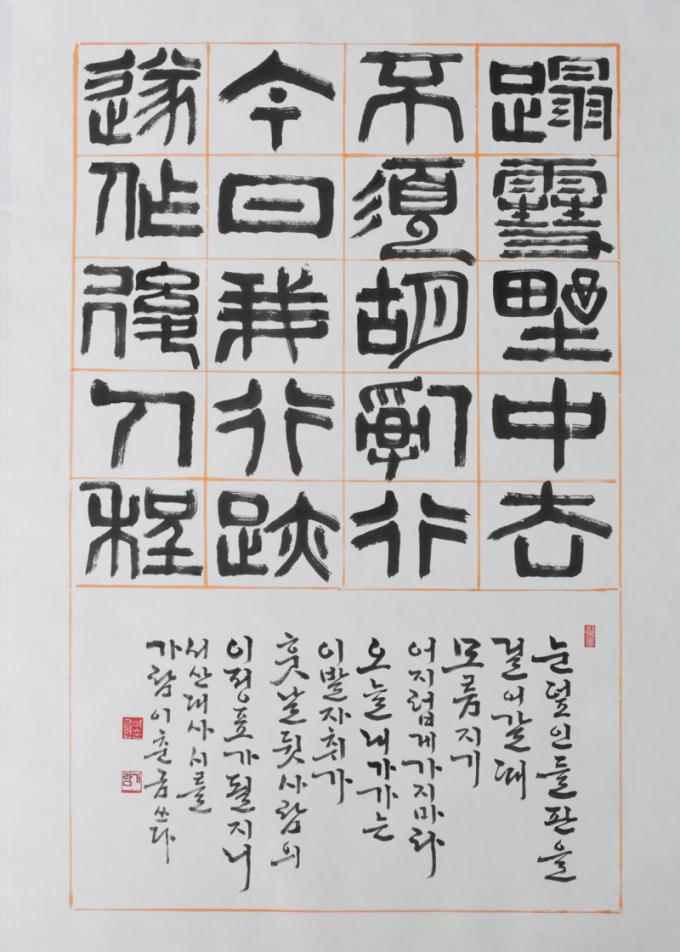 蹋雪野中去
不須胡亂行
今日我行跡
遂作後人程
눈덮인들판을
걸어갈때
모름지기
어지럽게가지마라
오늘내가가는
이발자취가
훗날뒷사람의
이정표가될지니
서산대사시를
가람이춘금쓰다
이춘금인
가람